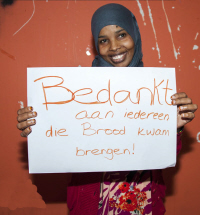 Bedankt
aan iedereen
die Brood kwam
brengen!